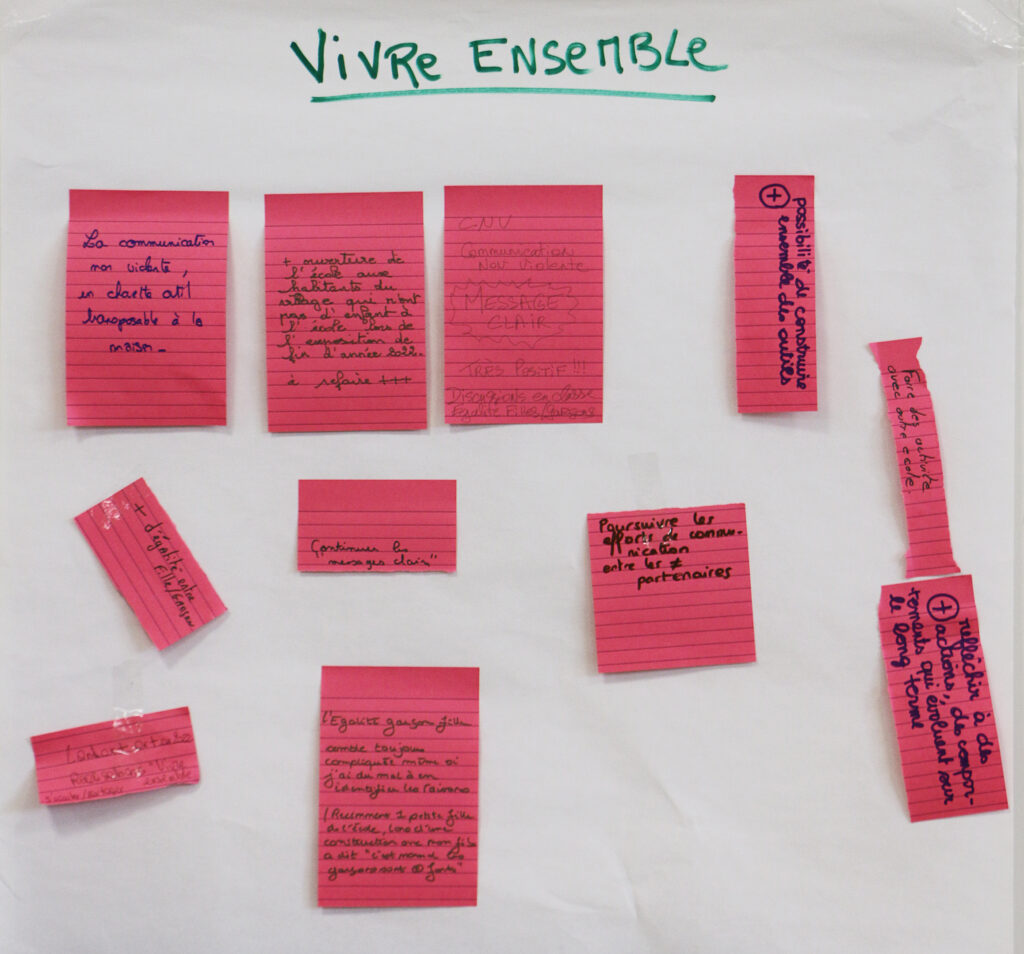 VIVRE ENSEMBLE
La communication
non violente,
en charte
transposable à la
maison
+ ouverture de
l'école aux
habitants du
village qui n'ont
pas d'enfant à
l'école lors de
l'exposition de
fin d'année 2022.
à refaire +++
CNV
Communication
Non Violente
MESSAGE
CLAIR
TRÈS POSITIF !!!
Discussions en classe
Égalité Filles/Garçons
possibilité de construire
+ ensemble des outils
Faire des activité
avec autre école.
+ d'égalité entre
Fille/Garçon
"Continuer les
"messages clairs"
Poursuivre les
efforts de commu-
nication
entre les ≠
partenaires
réfléchir à des
+ actions, des compor-
tements qui évoluent sur
le long terme
"Vivre
ensemble"
l'Egalité garçons filles
semble toujours
compliquée même si
j'ai du mal à en
identifier les raisons
(Récemment 1 petite fille
de l'école, lors d'une
construction avec mon fils
a dit "c'est normal les
garçons sont + forts"